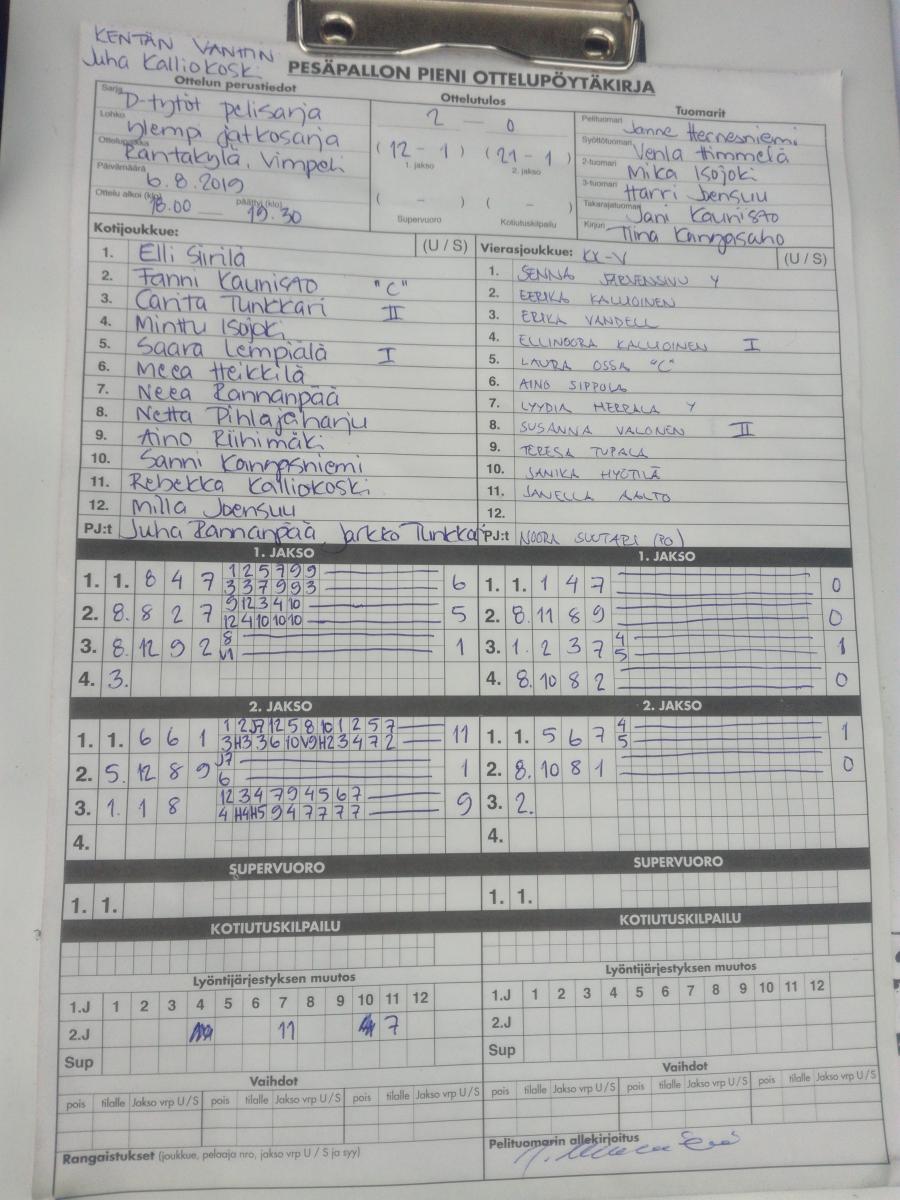 KENTÄN VAHTIN
Juha Kalliokoski
PESÄPALLON PIENI OTTELUPÖYTÄKIRJA
Ottelun perustiedot
Sarja D-tytöt pelisarja
Lohko ylempi jatkosarja
Ottelupaikka Rantakylä, Vimpeli
Päivämäärä 6.8.2019
Ottelu alkoi (klo) 18.00 — päättyi (klo) 19.30
Ottelutulos
2 — 0
(12 - 1) (21 - 1)
1. jakso 2. jakso
( - ) ( - )
Supervuoro Kotiutuskilpailu
Tuomarit
Pelituomari Janne Hernesniemi
Syöttötuomari Venla Himmelä
2-tuomari Mika Isojoki
3-tuomari Harri Joensuu
Takarajatuomari Jani Kaunisto
Kirjuri Tiina Kangasaho
Kotijoukkue: (U / S)
1. Elli Siirilä
2. Fanni Kaunisto "C"
3. Carita Tunkkari II
4. Minttu Isojoki
5. Saara Lempiälä I
6. Meea Heikkilä
7. Neea Rannanpää
8. Netta Pihlajaharju
9. Aino Riihimäki
10. Sanni Kangasniemi
11. Rebekka Kalliokoski
12. Milla Joensuu
PJ:t Juha Rannanpää, Jarkko Tunkkari
Vierasjoukkue: KK-V (U / S)
1. SENNA JÄRVENSIVU Y
2. EERIKA KALLIOINEN
3. ERIKA VANDELL
4. ELLINOORA KALLIOINEN I
5. LAURA OSSA "C"
6. AINO SIPPOLA
7. LYYDIA HERRALA Y
8. SUSANNA VALONEN II
9. TERESA TUPALA
10. JANIKA HYÖTILÄ
11. JANELLA AALTO
12.
PJ:t NOORA SUUTARI (PO)
1. JAKSO
1. 1. 8 4 7 1 2 5 7 9 9 6
3 3 7 9 9 3
2. 8. 8 2 7 9 12 3 4 10 5
12 4 10 10 10
3. 8. 12 9 2 8 1
V1
4. 3.
1. JAKSO
1. 1. 1 4 7 0
2. 8. 11 8 9 0
3. 1. 2 3 7 4 1
5
4. 8. 10 8 2 0
2. JAKSO
1. 1. 6 6 1 1 2 J7 12 5 8 10 1 2 5 7 11
3 H3 3 6 10 V9 H2 3 4 7 2
2. 5. 12 8 9 J7 1
6
3. 1. 1 8 12 3 4 7 9 4 5 6 7 9
4 H4 H5 9 4 7 7 7 7
4.
2. JAKSO
1. 1. 5 6 7 4 1
5
2. 8. 10 8 1 0
3. 2.
4.
SUPERVUORO
1. 1.
SUPERVUORO
1. 1.
KOTIUTUSKILPAILU
KOTIUTUSKILPAILU
Lyöntijärjestyksen muutos
1.J 1 2 3 4 5 6 7 8 9 10 11 12
2.J 11 7
Sup
Lyöntijärjestyksen muutos
1.J 1 2 3 4 5 6 7 8 9 10 11 12
2.J
Sup
Vaihdot
pois tilalle Jakso vrp U / S pois tilalle Jakso vrp U / S pois tilalle Jakso vrp U / S
Vaihdot
pois tilalle Jakso vrp U / S pois tilalle Jakso vrp U / S pois tilalle Jakso vrp U / S
Rangaistukset (joukkue, pelaaja nro, jakso vrp U / S ja syy)
Pelituomarin allekirjoitus